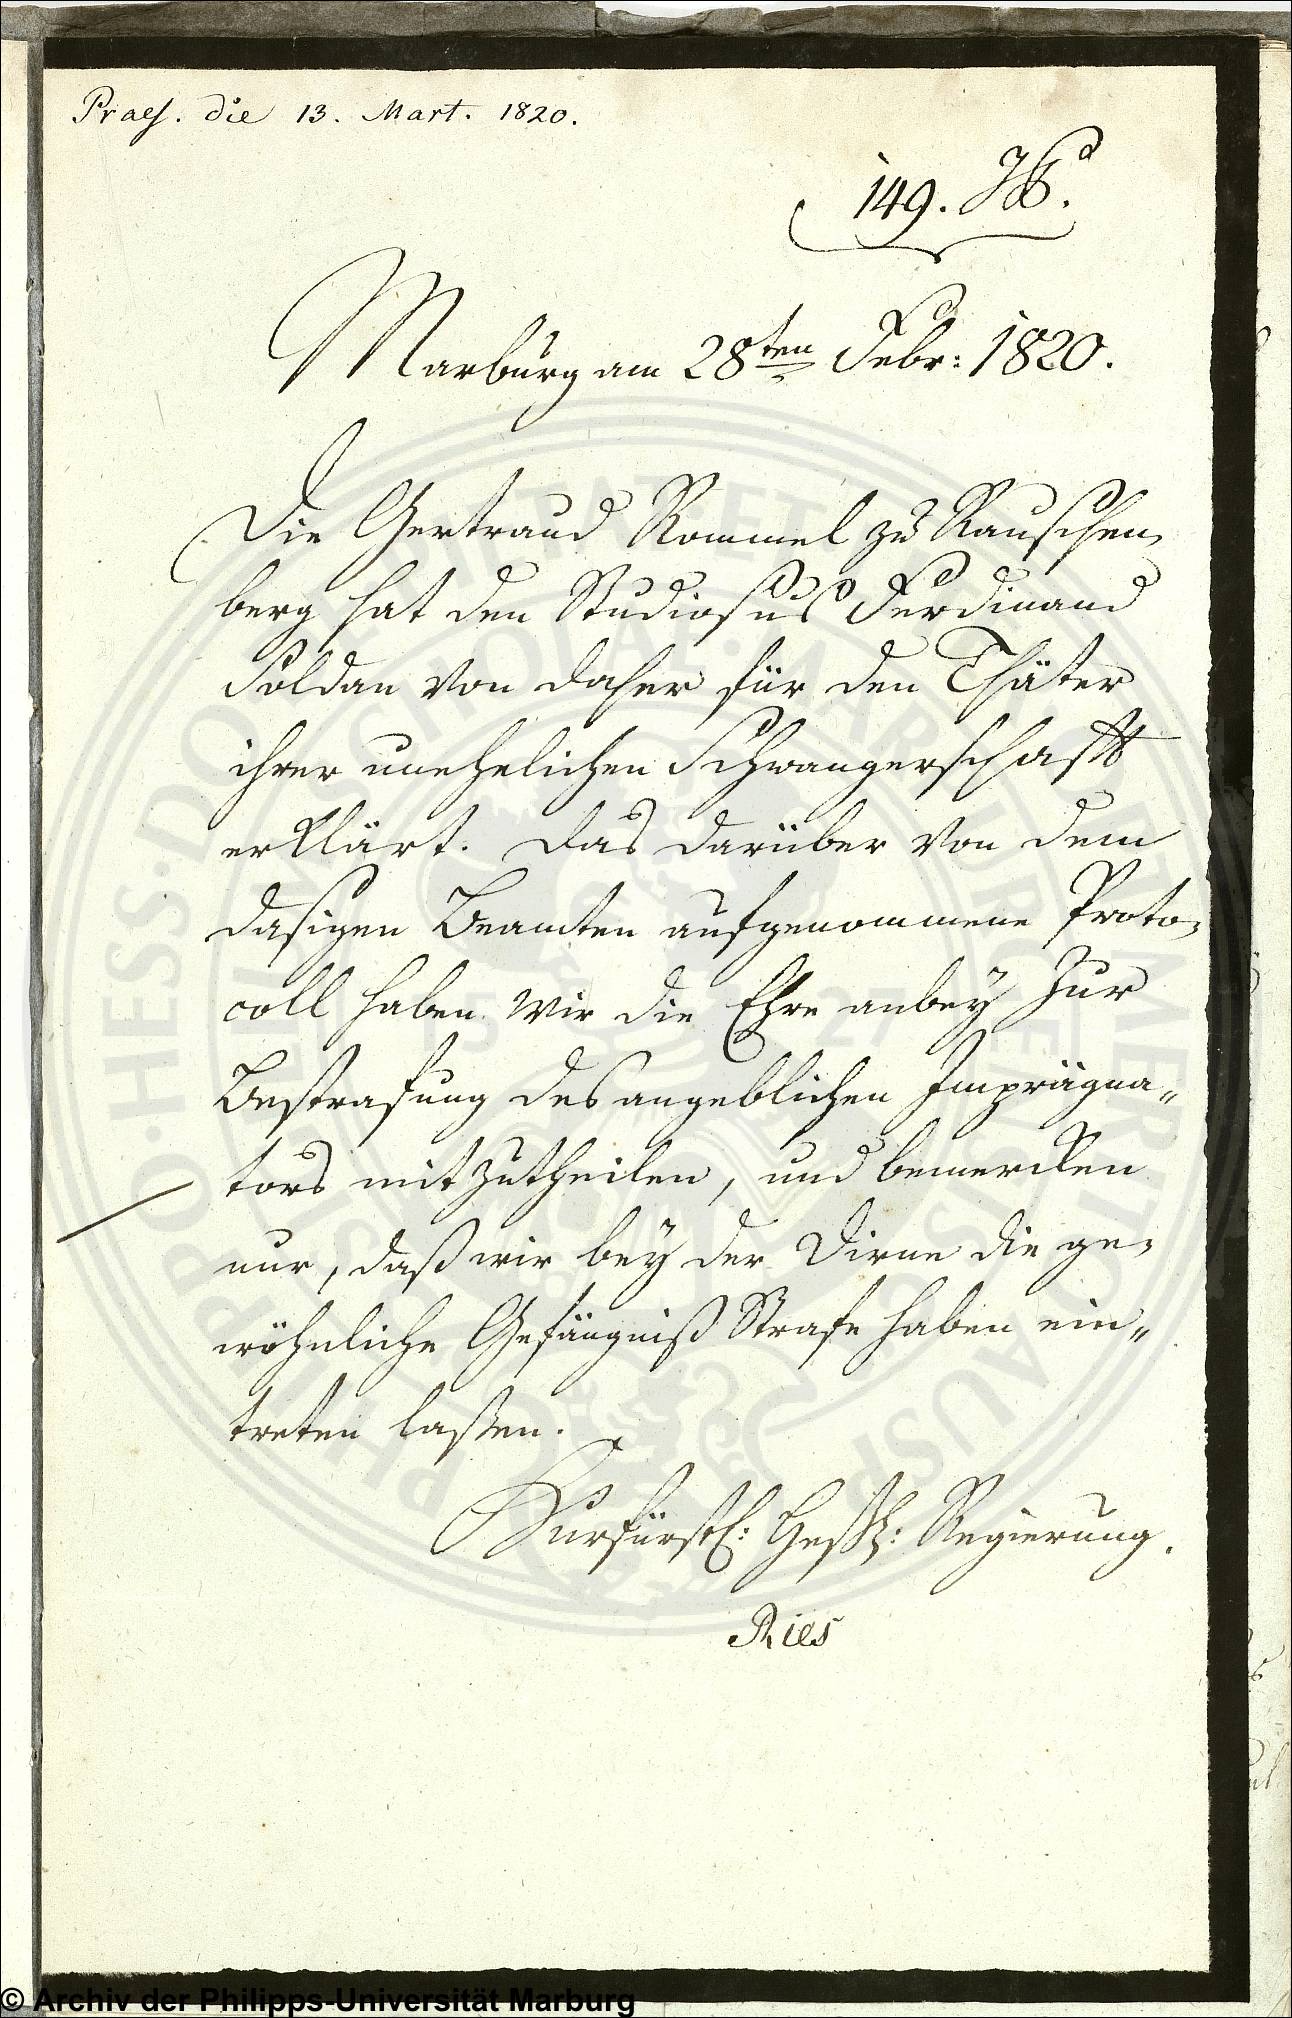 Praes. die 13. Mart. 1820.
149.
Marburg am 28ten Febr: 1820.
Die Gertraud Rommel zu Rauschen-
berg hat den Studiosus Ferdinand
Soldan von daher für den Thäter
ihrer unehelichen Schwangerschaft
erklärt. Das darüber von dem
dasigen Beamten aufgenommene Proto-
coll haben wir die Ehre anbey zur
Bestrafung des angeblichen Imprägna-
tors mitzutheilen, und bemercken
nur, daß wir bey der Dirne die ge-
wöhnliche Gefängniß Strafe haben ein-
treten laßen.
Kurfürstl: Heßl: Regierung.
Ries
© Archiv der Philipps-Universität Marburg